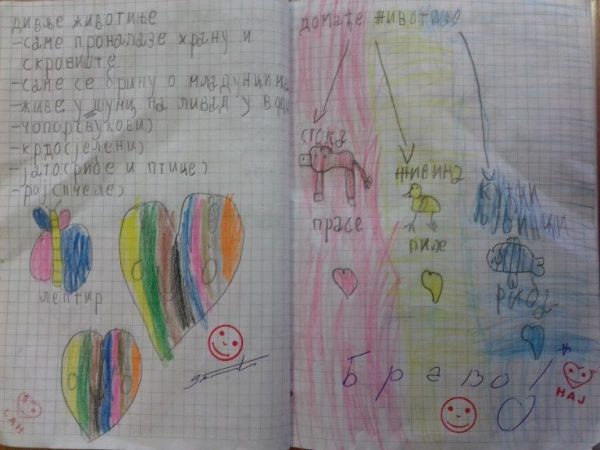 дивље животиње
-саме проналазе храну и
скровиште
-саме се брину о младунцима
-живе у шуми на ливад у вода
-чопор(вукови)
-крдо(јелени)
-јато(рибе и птице)
-рој(пчеле)
лептир
домаће животиње
стока
живина
кућни
љубимци
прасе
пиле
Браво!
НАЈ